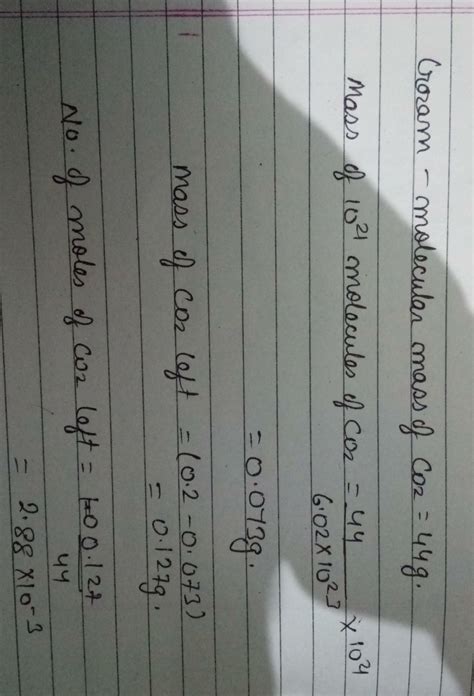 Goram - molecular mass of CO2 = 44g.
Mass of 10^21 molecules of CO2 = 44 / 6.02×10^23 × 10^21
= 0.073g.
Mass of CO2 left = (0.2 - 0.073)
= 0.127g.
No. of moles of CO2 left = 0.127 / 44
= 2.88 ×10^-3